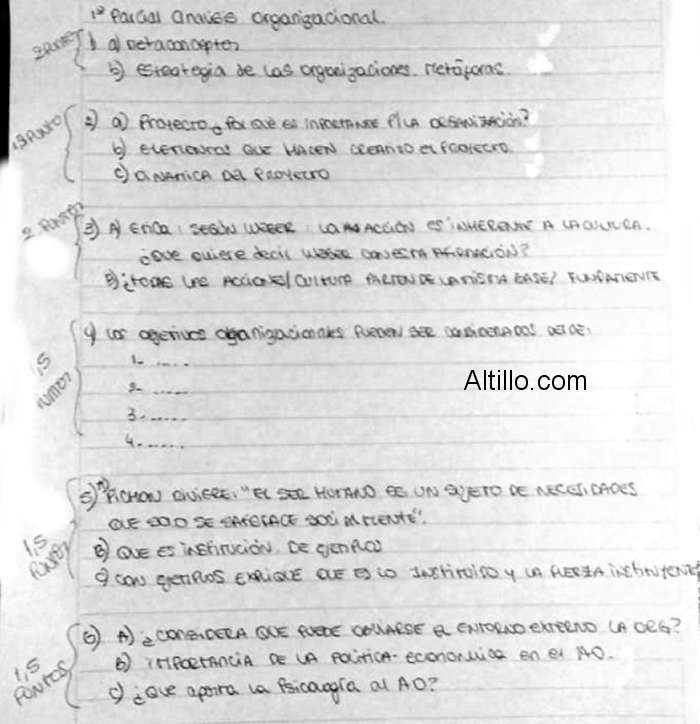 1º Parcial Analisis Organizacional.
2 PUNTOS
1) a) Metaconceptos
b) Estrategia de las organizaciones. Metáforas.
1,5 PUNTO
2) a) Proyecto ¿ POR QUE ES IMPORTANTE P/LA ORGANIZACIÓN?
b) ELEMENTOS QUE HACEN CREANDO el PROYECTO.
c) DINAMICA DEL PROYECTO
2 PUNTOS
3) A) Etica: SEGÚN WEBER: LA ACCIÓN ES INHERENTE A LA CULTURA.
¿Que quiere decir WEBER CON ESTA AFIRMACIÓN?
B) ¿TODAS LAS ACCIONES/CULTURA PARTEN DE LA MISMA BASE? FUNDAMENTE
1,5 PUNTOS
4) Los objetivos organizacionales PUEDEN SER CONSIDERADOS DESDE:
1- .....
2- .....
3- .....
4- .....
1,5 PUNTOS
5) A) PICHON RIVIERE: "EL SER HUMANO ES UN SUJETO DE NECESIDADES
QUE SOLO SE SATISFACE SOCIALMENTE".
B) QUE ES INSTITUCIÓN. DE EJEMPLOS
C) CON EJEMPLOS EXPLIQUE QUE ES LO INSTITUIDO Y LA FUERZA INSTITUYENTE
1,5 PUNTOS
6) A) ¿CONSIDERA QUE PUEDE OBVIARSE EL ENTORNO EXTERNO LA ORG?
B) IMPORTANCIA DE LA POLITICA - ECONOMICA en el AO.
C) ¿Que aporta la Psicología al AO?
Altillo.com